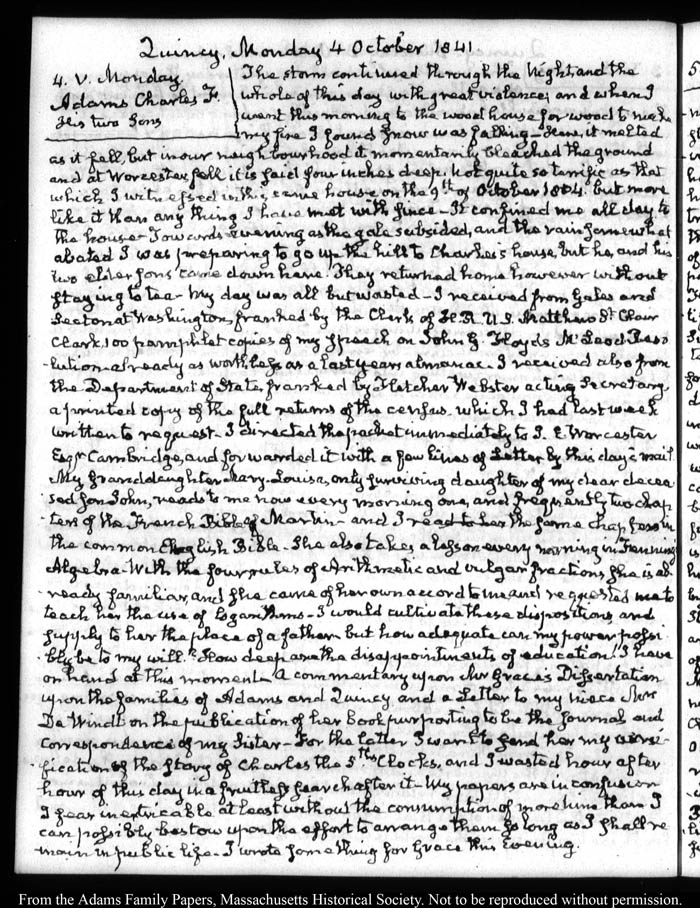 Quincy, Monday 4 October 1841
4. V. Monday
Adams Charles F.
His two Sons
The storm continued through the Night, and the
whole of this day with great violence; and when I
went this morning to the wood house for wood to make
my fire I found snow was falling - Here, it melted
as it fell, but in our neighbourhood it momentarily bleached the ground
and at Worcester fell it is said four inches deep. Not quite so terrific as that
which I witnessed in this same house on the 9th of October 1804. but more
like it than any thing I have met with since - It confined me all day to
the house - Towards evening as the gale subsided, and the rain somewhat
abated I was preparing to go up the hill to Charles's house, but he, and his
two elder sons came down here. They returned home however without
staying to tea - My day was all but wasted - I received from Gales and
Seaton at Washington, franked by the Clerk of H.R. U.S. Matthew St. Clair
Clark, 100 pamphlet copies of my speech on John G. Floyds McLeod Reso-
lution already as worthless as a last years almanac. I received also from
the Department of State, franked by Fletcher Webster acting Secretary
a printed copy of the full returns of the census. which I had last week
written to request - I directed the packet immediately to J. E. Worcester
Esqr Cambridge, and forwarded it with a few lines of Letter by this day's mail
My Granddaughter Mary-Louisa, only surviving daughter of my dear decea-
sed son John, reads to me now every morning one, and frequently two chap-
ters of the French Bible of Martin - and I read to her the same chapters in
the common English Bible - She also takes a lesson every morning in
Algebra - With the four rules of Arithmetic and vulgar fractions she is al-
ready familiar, and she came of her own accord to me and requested me to
teach her the use of Logarithms - I would cultivate these dispositions, and
supply to her the place of a father, but how adequate can my power possi-
bly be to my will? How deep are the disappointments of education! I have
on hand at this moment a commentary upon Mr Grace's Dissertation
upon the families of Adams and Quincy, and a Letter to my niece Mrs
De Windt on the publication of her book purporting to be the Journal and
Correspondence of my Sister - For the latter I want to send her my versi-
fication of the story of Charles the 5ths Clocks, and I wasted hour after
hour of this day in a fruitless search after it - My papers are in confusion
I fear inextricable at least without the consumption of more time than I
can possibly bestow upon the effort to arrange them so long as I shall re-
main in public life - I wrote something for Grace this Evening.
From the Adams Family Papers, Massachusetts Historical Society. Not to be reproduced without permission.